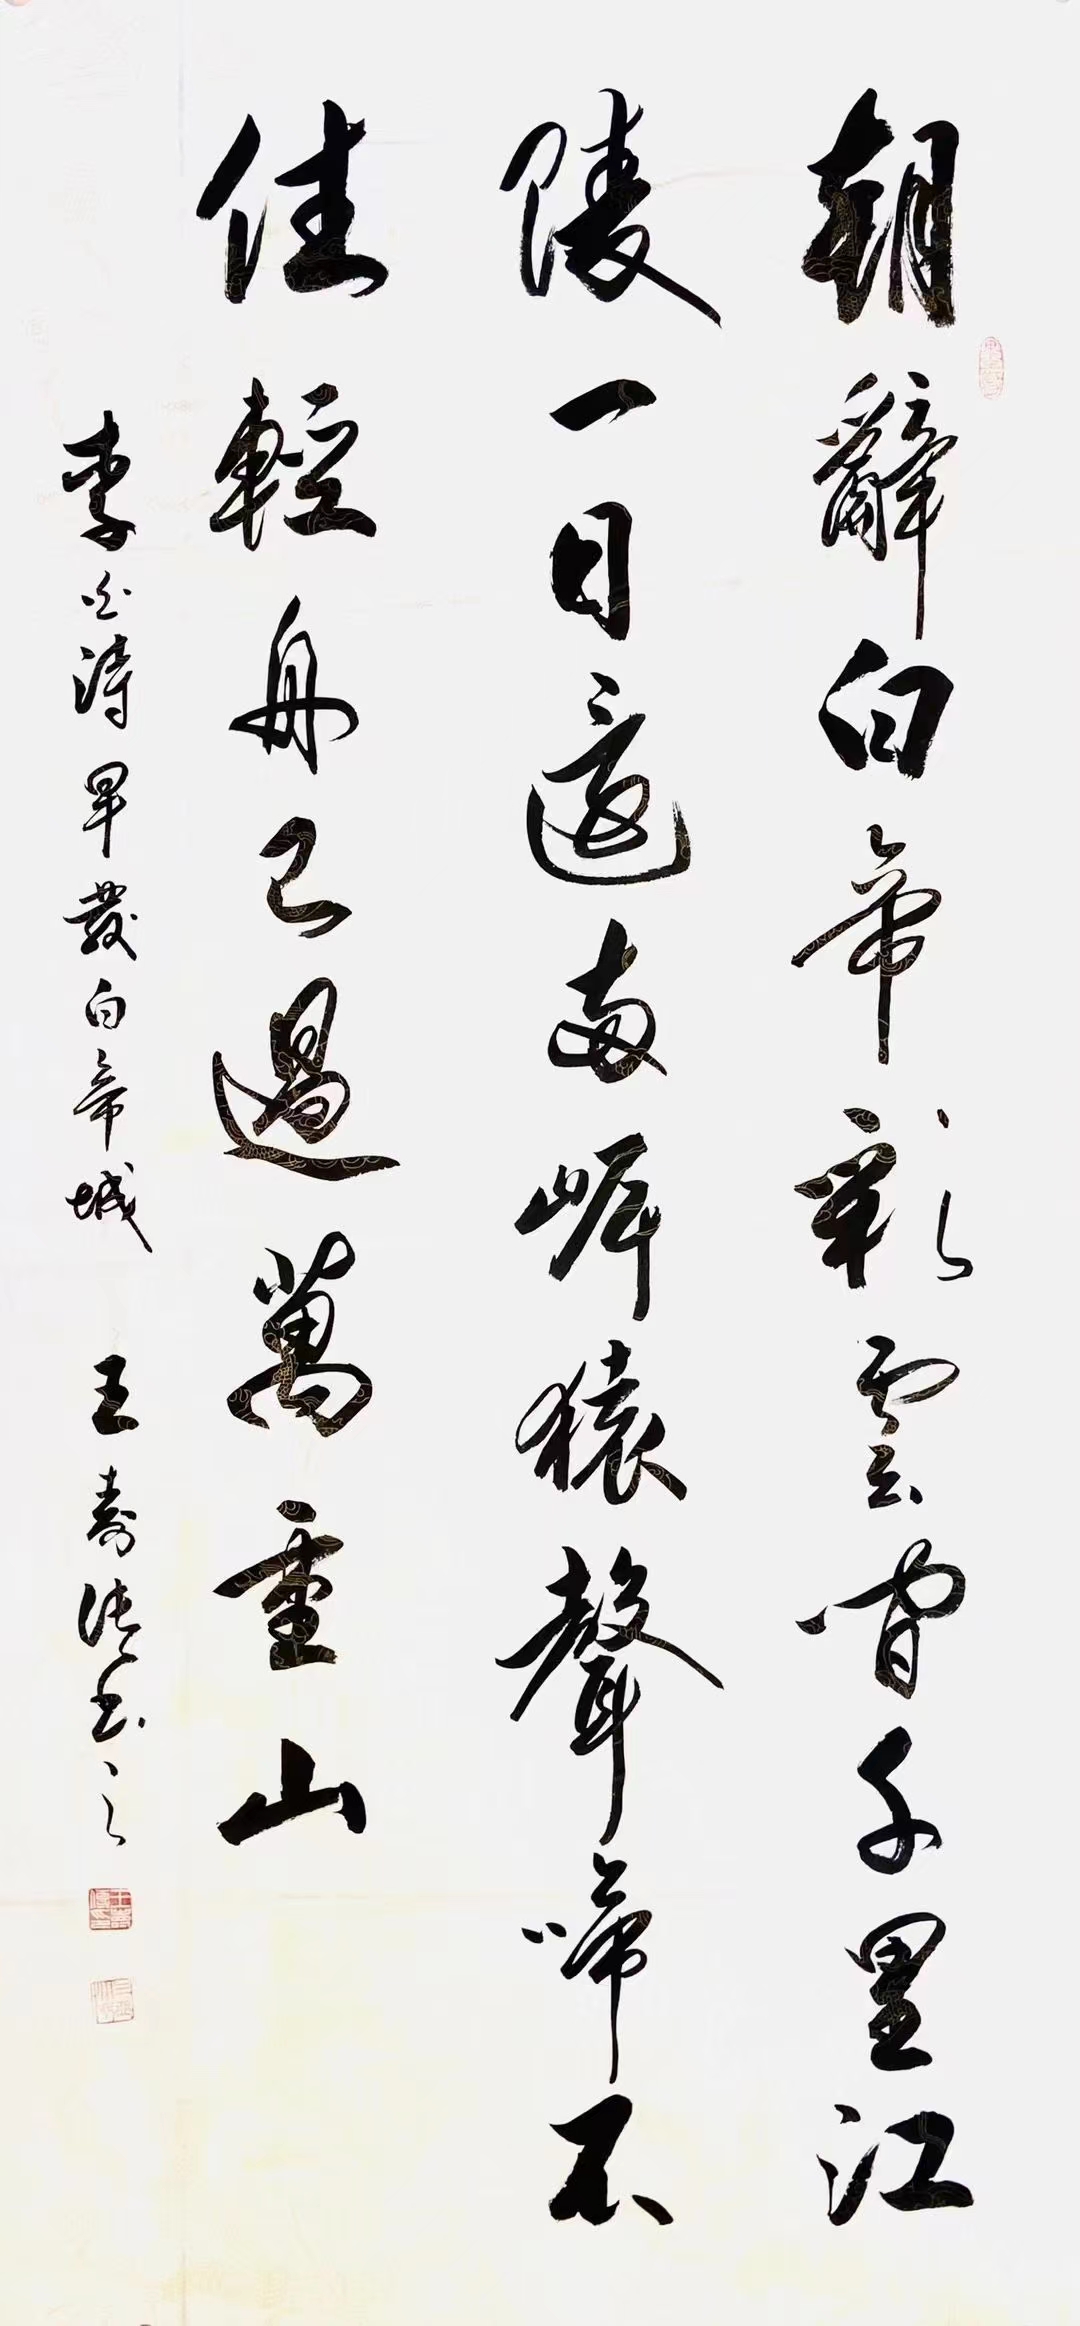 朝辭白帝彩雲間千里江
陵一日還兩岸猿聲啼不
住輕舟已過萬重山
李白詩早發白帝城 王壽傳書之